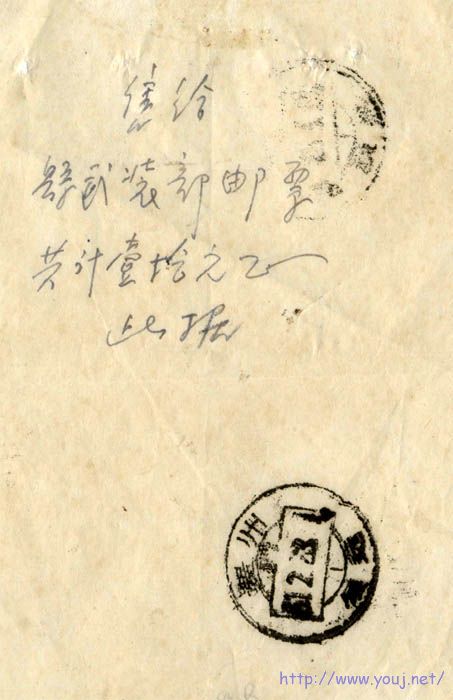 售给
縣武装部邮票
共计壹拾元正
此据
州
2 28
http://www.youj.net/